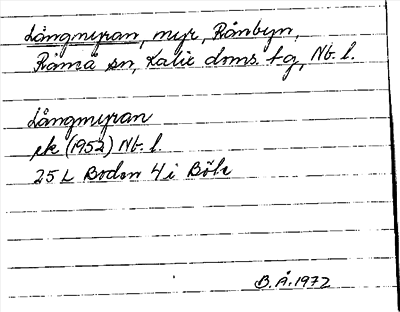 Långmyran, myr, Rånbyn,
Råneå sn, Kalix doms. tg, Nb. l.
Långmyran
ek (1952) Nb. l.
25 L Boden 4 i Böle
B. Å. 1972